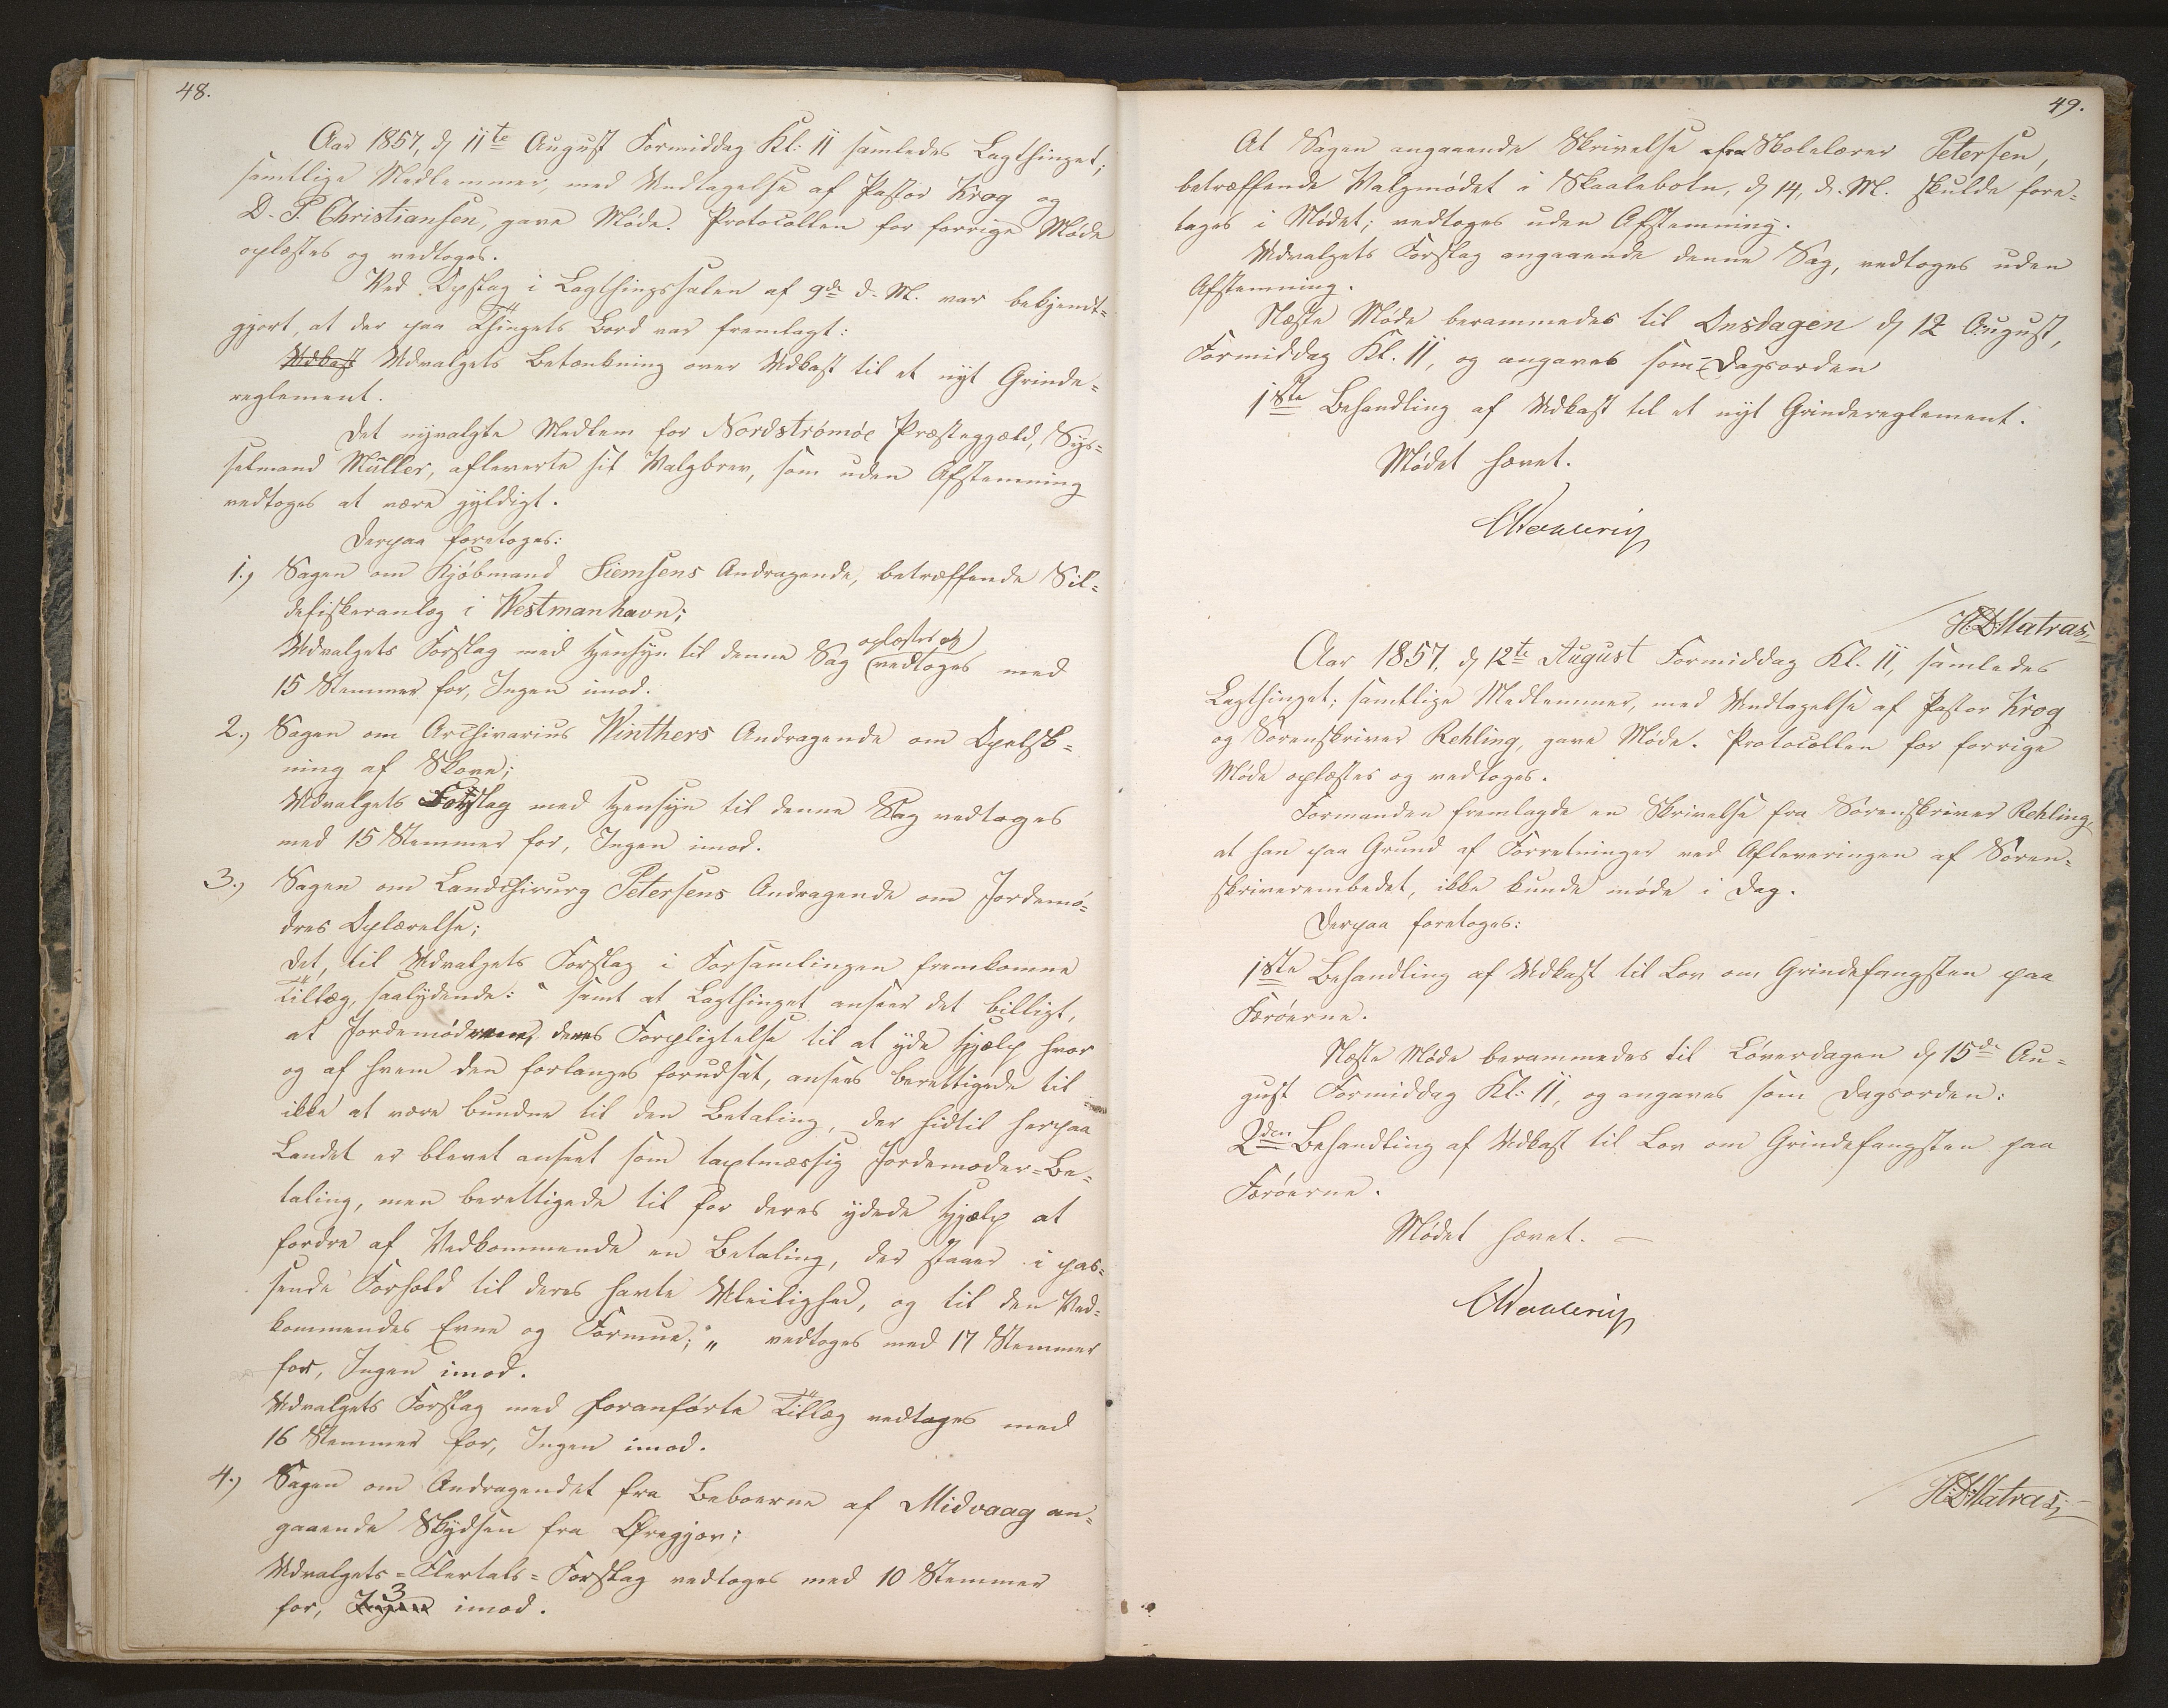 48.
Aar 1857, d. 11te August Formiddag Kl: 11 samledes Lagthinget;
samtlige Medlemmer, med Undtagelse af Pastor Krog og
D. P. Christiansen, gave Møde. Protocollen for forrige Møde
oplæstes og vedtoges.
Ved Opslag i Lagthingssalen af 9de d. M. var bekjendt=
gjort, at der paa Thingets Bord var fremlagt:
Udkast Udvalgets Betænkning over Udkast til et nyt Grinde=
reglement.
Det nyvalgte Medlem for Nordstrømøe Præstegjæld, Sys=
selmand Müller, afleverte sit Valgbrev, som uden Afstemning
vedtoges at være gyldigt.
Derpaa foretoges:
1.) Sagen om Kjöbmand Siemsens Andragende, betræffende Sil=
defiskeranlæg i Westmanhavn;
Udvalgets Forslag med Hensyn til denne Sag (oplæstes og) vedtoges med
15 Stemmer for, Ingen imod.
2.) Sagen om Archivarius Winthers Andragende om Opelsk=
ning af Skove;
Udvalgets Forslag med Hensyn til denne Sag vedtoges
med 15 Stemmer for, Ingen imod.
3.) Sagen om Landchirurg Petersens Andragende om Jordemö=
dres Oplærelse;
Det, til Udvalgets Forslag i Forsamlingen fremkomne
Tillæg, saalydende: " samt at Lagthinget anseer det billigt,
at Jordemødrene, deres Forpligtelse til at yde Hjælp hvor
og af hvem den forlanges forudsat, ansees berettigede til
ikke at være bundne til den Betaling, der hidtil herpaa
Landet er blevet anseet som taxtmæssig Jordemoder=Be=
taling, men berettigede til for deres ydede Hjælp at
fordre af Vedkommende en Betaling, der staaer i pas=
sende Forhold til deres havte Uleilighed, og til den Ved=
kommendes Evne og Formue; " vedtoges med 17 Stemmer
for, Ingen imod.
Udvalgets Forslag med foranførte Tillæg vedtoges med
16 Stemmer for, Ingen imod.
4.) Sagen om Andragendet fra Beboerne af Midvaag an=
gaaende Skydsen fra Øregjov;
Udvalgets=Flertals=Forslag vedtoges med 10 Stemmer
for, Ingen 3 imod.
49.
At Sagen angaaende Skrivelse fra Skolelærer Petersen,
betræffende Valgmödet i Skaalebotn, d. 14, d. M. skulde fore=
tages i Mødet; vedtoges uden Afstemning.
Udvalgets Forslag angaaende denne Sag, vedtoges uden
Afstemning.
Næste Møde berammedes til Onsdagen d. 12 August,
Formiddag Kl. 11, og angaves som Dagsorden
1ste Behandling af Udkast til et nyt Grindereglement.
Mødet hævet.
H:D:Matras,
Aar 1857, d. 12te August Formiddag Kl. 11, samledes
Lagthinget; samtlige Medlemmer, med Undtagelse af Pastor Krog
og Sorenskriver Rehling, gave Møde. Protocollen for forrige
Møde oplæstes og vedtoges.
Formanden fremlagde en Skrivelse fra Sorenskriver Rehling,
at han paa Grund af Forretninger ved Afleveringen af Soren=
skriverembedet, ikke kunde møde i Dag.
Derpaa foretoges:
1ste Behandling af Udkast til Lov om Grindefangsten paa
Færøerne.
Næste Møde berammedes til Løverdagen d. 15de Au=
gust Formiddag Kl: 11, og angaves som Dagsorden:
2den Behandling af Udkast til Lov om Grindefangsten paa
Færøerne.
Mødet hævet. —
H:D:Matras,